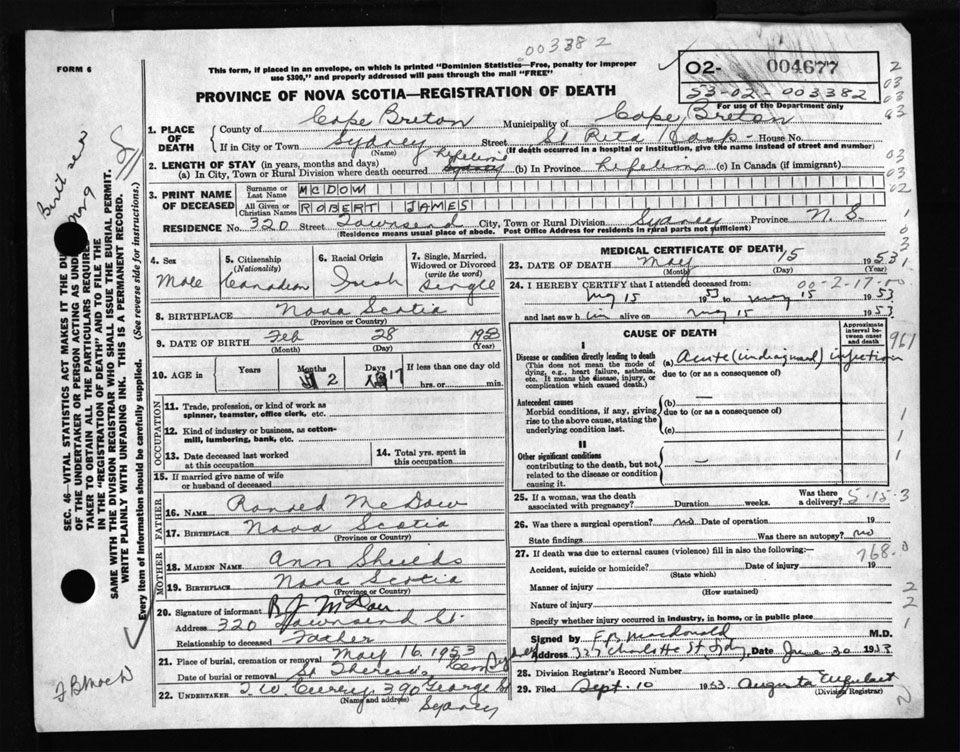 003382
FORM 6
This form, if placed in an envelope, on which is printed "Dominion Statistics—Free, penalty for improper
use $300," and properly addressed will pass through the mail "FREE"
02- 004677
53-02-003382
For use of the Department only
PROVINCE OF NOVA SCOTIA—REGISTRATION OF DEATH
1. PLACE OF DEATH
County of Cape Breton Municipality of Cape Breton
If in City or Town Sydney Street St Rita Hosp House No.
(Name) (If death occurred in a hospital or institution, give the name instead of street and number)
2. LENGTH OF STAY (in years, months and days)
(a) In City, Town or Rural Division where death occurred Lifetime (b) In Province Lifetime (c) In Canada (if immigrant)
3. PRINT NAME OF DECEASED
Surname or Last Name MCDOW
All Given or Christian Names ROBERT JAMES
RESIDENCE No. 320 Street Townsend City, Town or Rural Division Sydney Province N.S
(Residence means usual place of abode. Post Office Address for residents in rural parts not sufficient)
4. Sex Male
5. Citizenship (Nationality) Canadian
6. Racial Origin Irish
7. Single, Married, Widowed or Divorced (write the word) Single
8. BIRTHPLACE Nova Scotia
(Province or Country)
9. DATE OF BIRTH Feb 28 1953
(Month) (Day) (Year)
10. AGE in Years Months 2 Days 17 If less than one day old
hrs. or min.
OCCUPATION
11. Trade, profession, or kind of work as
spinner, teamster, office clerk, etc.
12. Kind of industry or business, as cotton-
mill, lumbering, bank, etc.
13. Date deceased last worked
at this occupation
14. Total yrs. spent in
this occupation
15. If married give name of wife
or husband of deceased
FATHER
16. NAME Ronald McDow
17. BIRTHPLACE Nova Scotia
(Province or Country)
MOTHER
18. MAIDEN NAME Ann Shields
19. BIRTHPLACE Nova Scotia
(Province or Country)
20. Signature of informant R J McDow
Address 320 Townsend St.
Relationship to deceased Father
21. Place of burial, cremation or removal May 16, 1953
Date of burial or removal St Theresa Cem Sydney
22. UNDERTAKER T. W. Curry, 390 George St
(Name and address) Sydney
MEDICAL CERTIFICATE OF DEATH
23. DATE OF DEATH May 15 1953
(Month) (Day) (Year)
24. I HEREBY CERTIFY that I attended deceased from:
00-2-17-00
May 15 1953 to May 15 1953
and last saw him alive on May 15 1953
CAUSE OF DEATH
Approximate interval between onset and death
I
Disease or condition directly leading to death
(This does not mean the mode of
dying, e.g., heart failure, asthenia,
etc. It means the disease, injury, or
complication which caused death.)
(a) Acute (undiagnosed) infection
due to (or as a consequence of)
961
Antecedent causes
Morbid conditions, if any, giving
rise to the above cause, stating the
underlying condition last.
(b) —
due to (or as a consequence of)
(c)
II
Other significant conditions
contributing to the death, but not
related to the disease or condition
causing it.
—
25. If a woman, was the death
associated with pregnancy? Duration weeks. Was there a delivery?
5-15-3
26. Was there a surgical operation? no Date of operation 19
State findings Was there an autopsy? no
27. If death was due to external causes (violence) fill in also the following:—
768.0
Accident, suicide or homicide? Date of injury 19
(State which)
Manner of injury
(How sustained)
Nature of injury
Specify whether injury occurred in industry, in home, or in public place
Signed by F.R. Macdonald M.D.
Address 327 Charlotte St, Sydney Date June 30 1953
28. Division Registrar's Record Number
29. Filed Sept. 10 1953 Augusta
(Division Registrar)
SEC. 46—VITAL STATISTICS ACT MAKES IT THE DU
OF THE UNDERTAKER OR PERSON ACTING AS UNDER
TAKER TO OBTAIN ALL THE PARTICULARS REQUIRE
IN THE "REGISTRATION OF DEATH" AND TO FILE THE
SAME WITH THE DIVISION REGISTRAR WHO SHALL ISSUE THE BURIAL PERMIT.
WRITE PLAINLY WITH UNFADING INK. THIS IS A PERMANENT RECORD.
Every item of information should be carefully supplied. (See reverse side for instructions.)